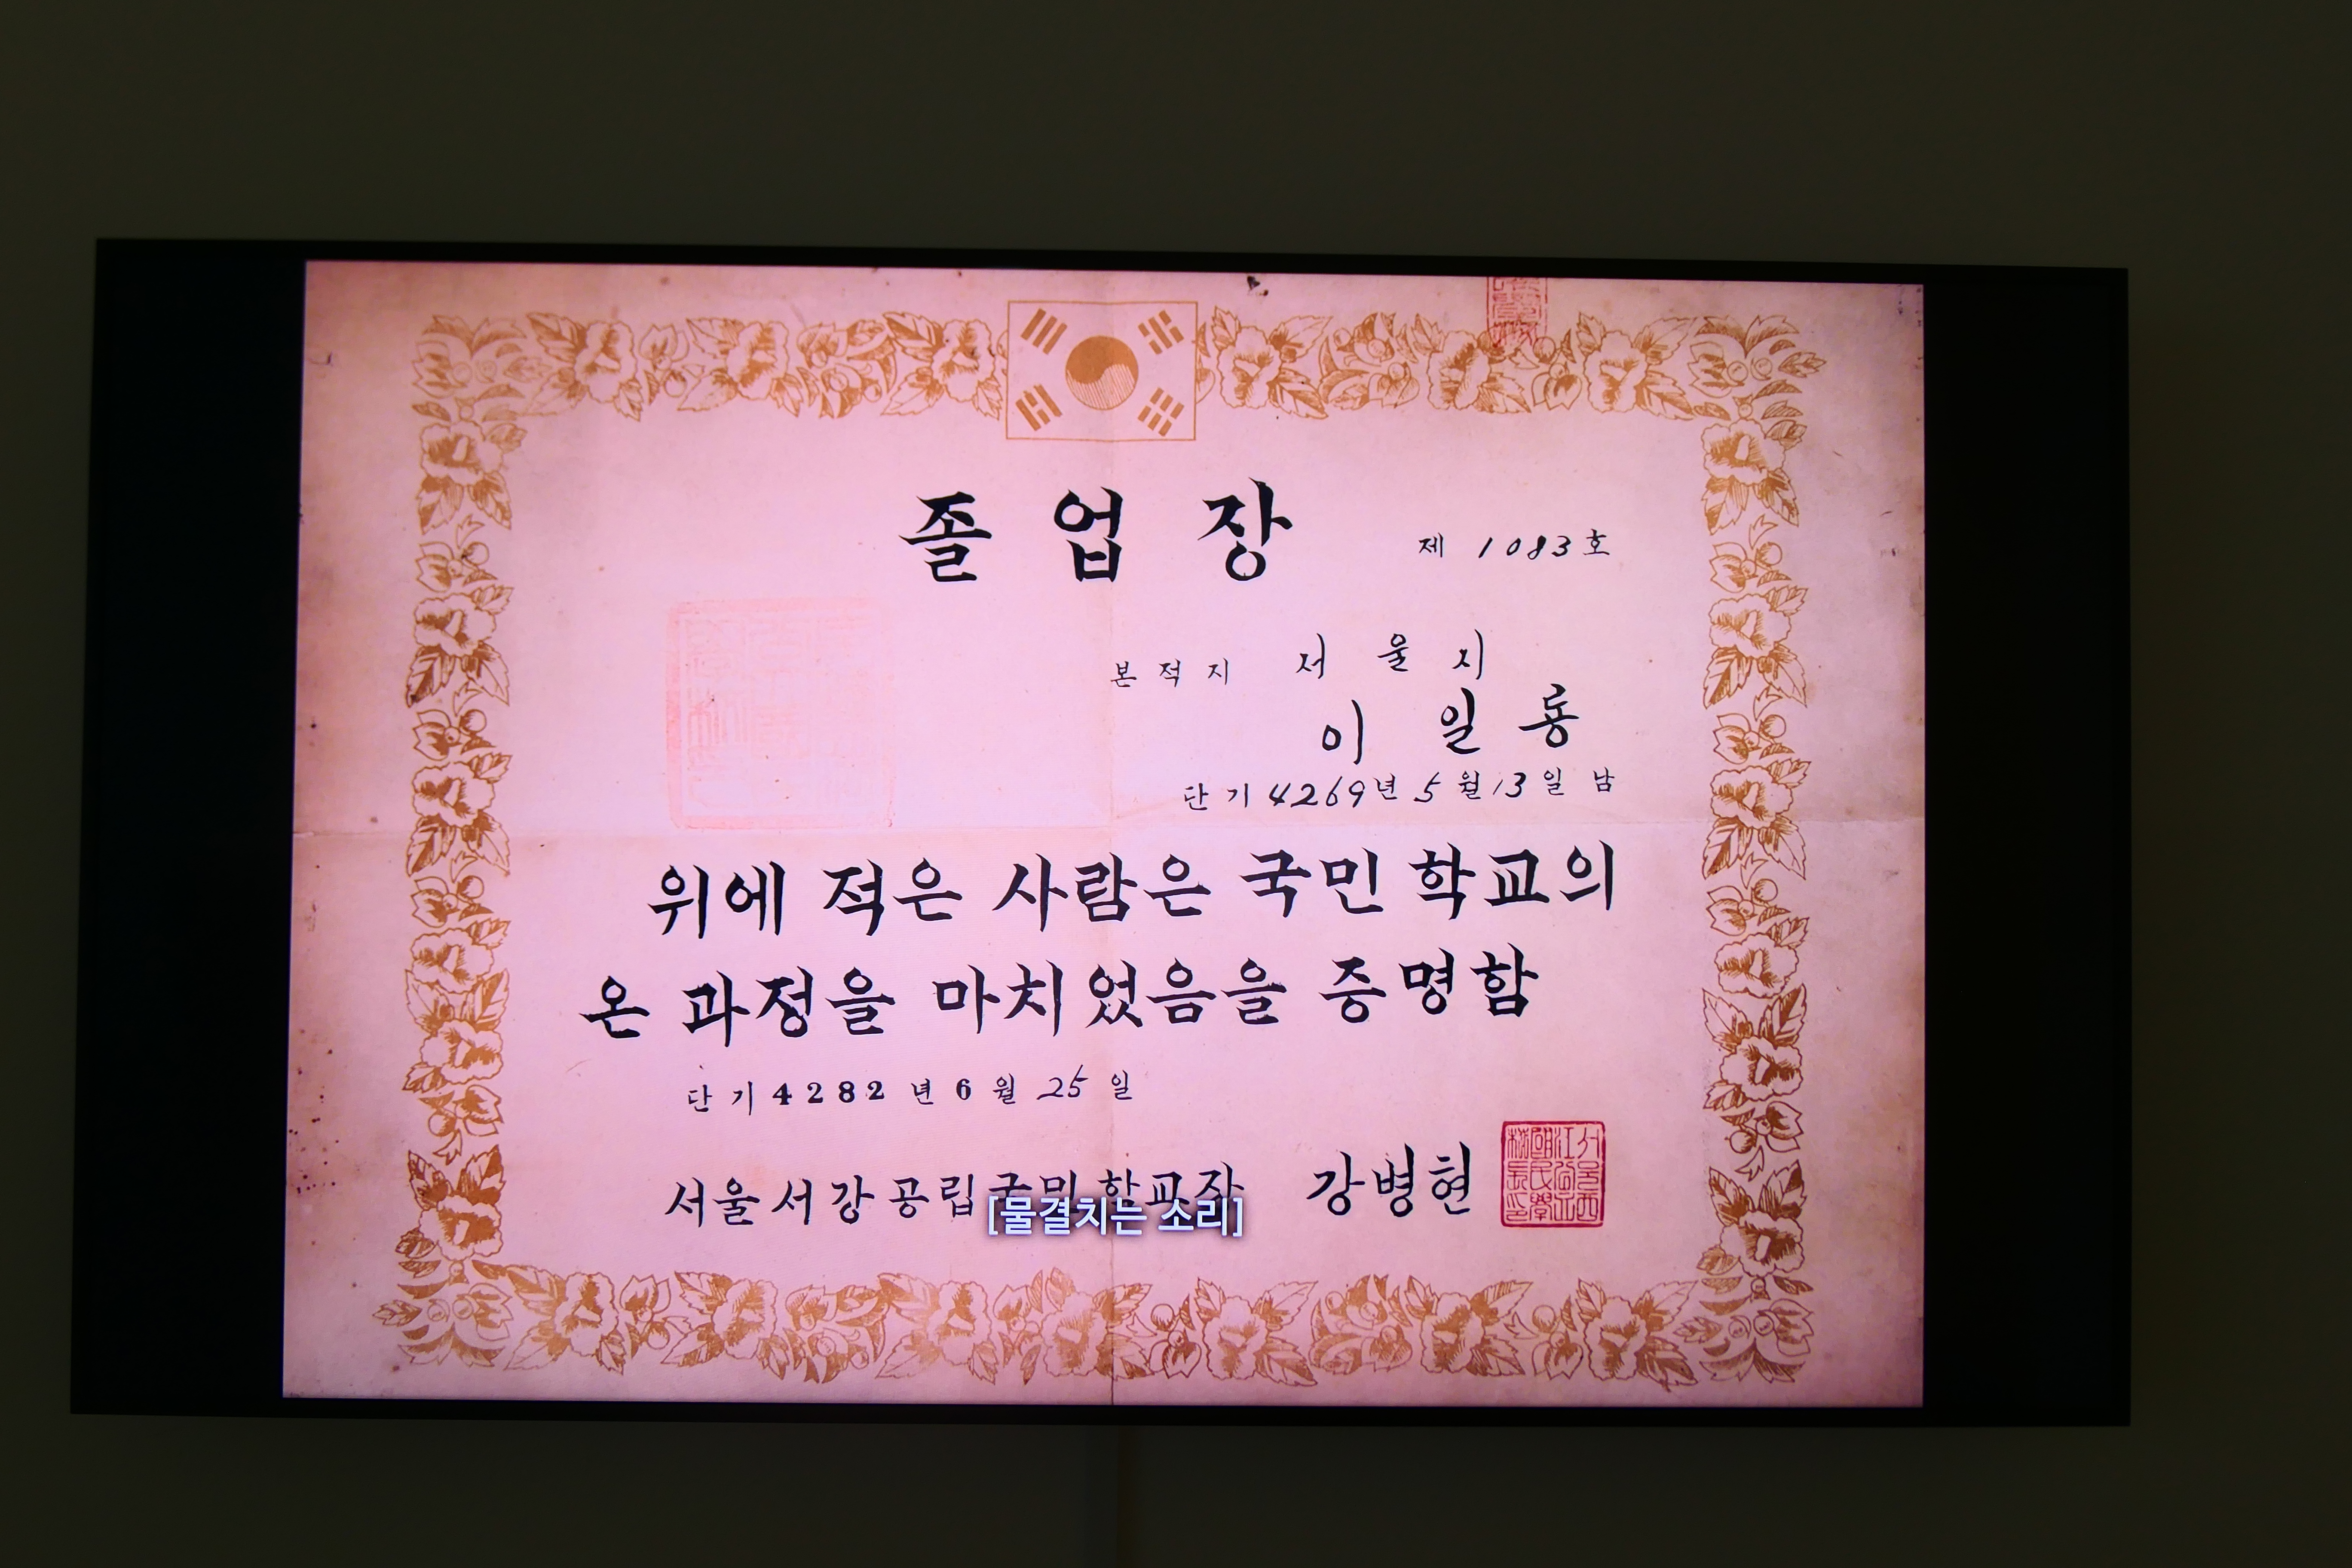 졸업장
제 1083호
본적지 서울시
이일룡
단기 4269년 5월 13일 남
위에 적은 사람은 국민 학교의
온 과정을 마치었음을 증명함
단기 4282년 6월 25일
서울서강공립국민학교장 강병현
[물결치는 소리]